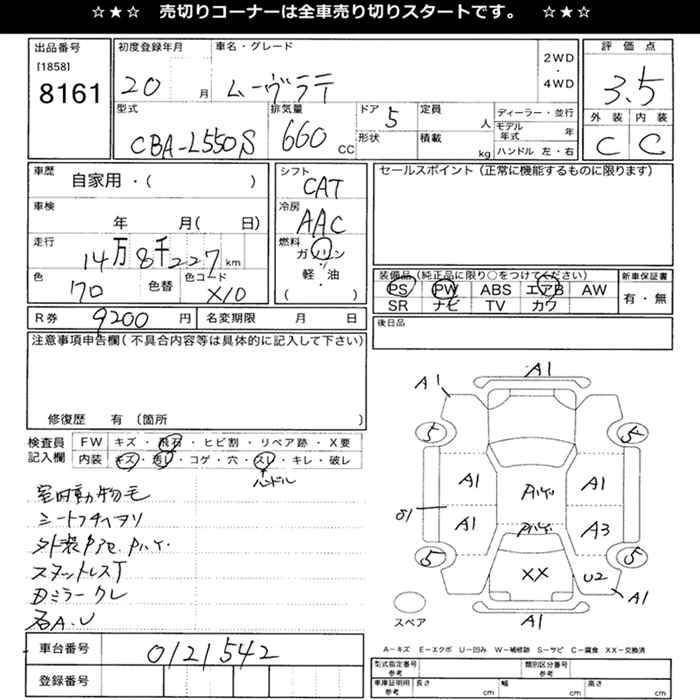 ☆★☆ 売切りコーナーは全車売り切りスタートです。 ☆★☆
出品番号
[1858]
8161
初度登録年月
20 月
車名・グレード
ムーヴラテ
2WD
・
4WD
評価点
3.5
外装 内装
C C
型式
CBA-L550S
排気量
660 CC
ドア 5
形状
定員 人
積載 kg
ディーラー・並行
モデル年式 年
ハンドル 左・右
車歴
自家用・( )
車検
年 月( 日)
走行
14万8千227 km
色
70
色替
色コード
X10
シフト
CAT
冷房
AAC
燃料
ガソリン
・
軽・油
( )
セールスポイント(正常に機能するものに限ります)
装備品(純正品に限り○をつけてください)
PS PW ABS エアB AW
SR ナビ TV カワ
新車保証書
有・無
R券 9200 円
名変期限 月 日
後日品
注意事項申告欄(不具合内容等は具体的に記入して下さい)
修復歴 有〔箇所 〕
検査員
記入欄
FW キズ・飛石・ヒビ割・リペア跡・X要
内装 キズ・汚レ・コゲ・穴・スレ・キレ・破レ
ハンドル
室内動物毛
外装
スタットレスT
A1
A1
5
5
A1
A1
A1
A3
5
5
XX
U2
A1
A1
スペア
A-キズ E-エクボ U-凹み W-補修跡 S-サビ C-腐食 XX-交換済
車台番号
0121542
登録番号
型式指定番号
参考
類別区分番号
参考
車庫証明用
参考
長さ cm
幅 cm
高さ cm